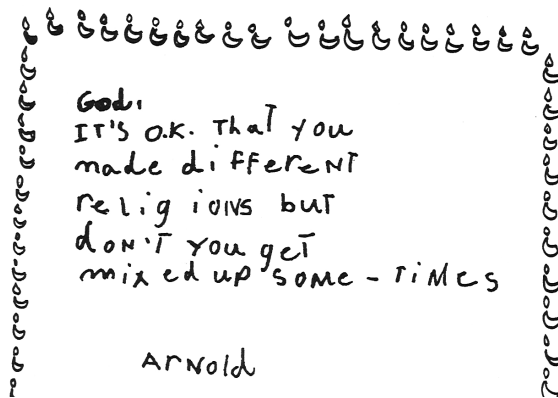 God,
IT'S O.K. That you
made different
religions but
doN'T you get
mixed up some-Times
ArNold